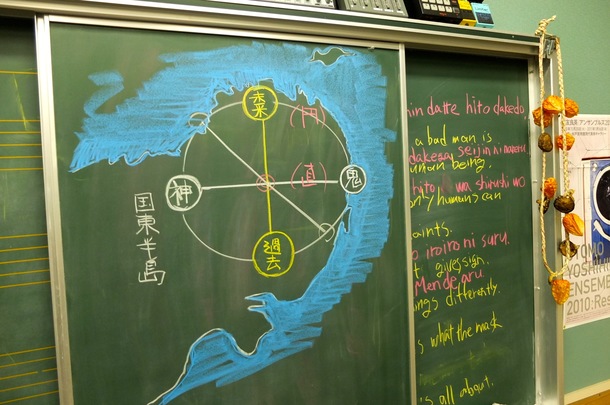 未来
(円)
(直)
神
鬼
過去
国東半島
in datte hito dakedo
a bad man is
dakega seijin ni
uman being.
hito wa shirushi wo
only humans can
aints.
o iroiro ni suru.
t gives sign.
Mende aru.
ings differently.
s what the mask
is all about.
OMO
YOSHI
ENSEME
2010:Re